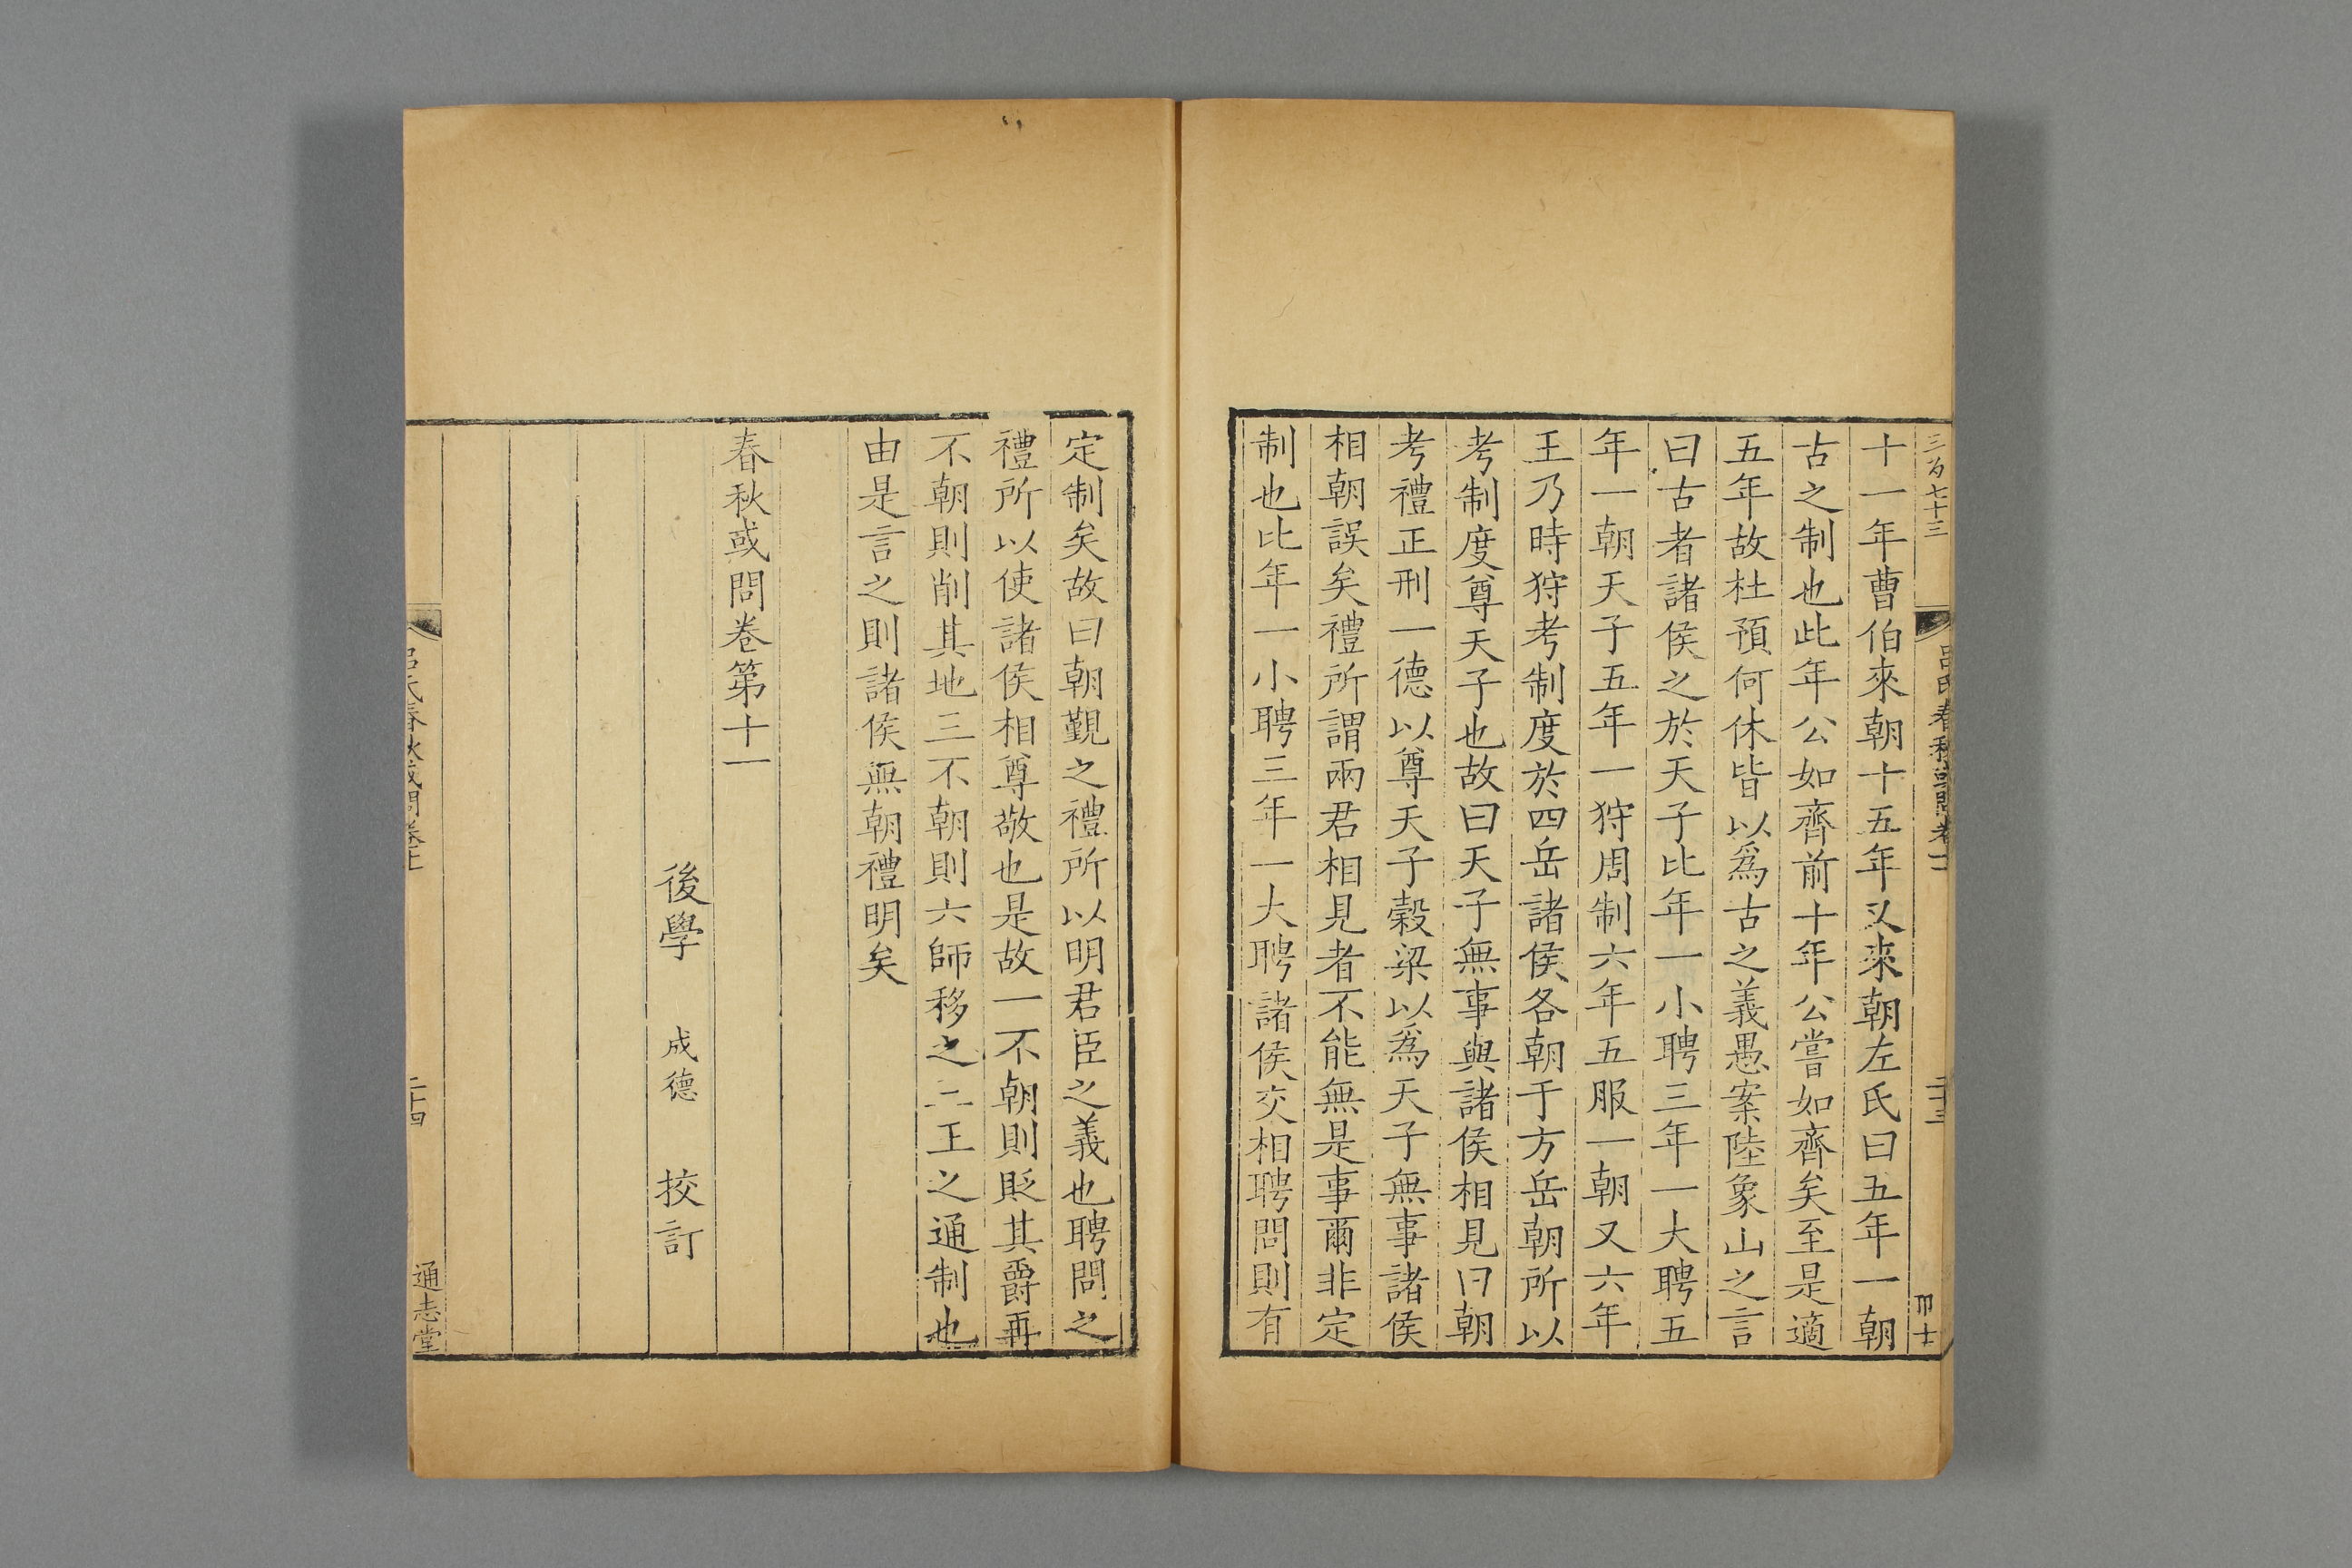 三百七十三
十一年曹伯來朝十五年又來朝左氏曰五年一朝
古之制也此年公如齊前十年公嘗如齊矣至是適
五年故杜預何休皆以爲古之義愚案陸象山之言
曰古者諸侯之於天子比年一小聘三年一大聘五
年一朝天子五年一狩周制六年五服一朝又六年
王乃時狩考制度於四岳諸侯各朝于方岳朝所以
考制度尊天子也故曰天子無事與諸侯相見曰朝
考禮正刑一德以尊天子穀梁以爲天子無事諸侯
相朝誤矣禮所謂兩君相見者不能無是事爾非定
制也比年一小聘三年一大聘諸侯交相聘問則有
定制矣故曰朝覲之禮所以明君臣之義也聘問之
禮所以使諸侯相尊敬也是故一不朝則貶其爵再
不朝則削其地三不朝則六師移之二王之通制也
由是言之則諸侯無朝禮明矣
春秋或問卷第十一
後學 成德 挍訂
呂氏春秋或問卷十一
二十四
通志堂